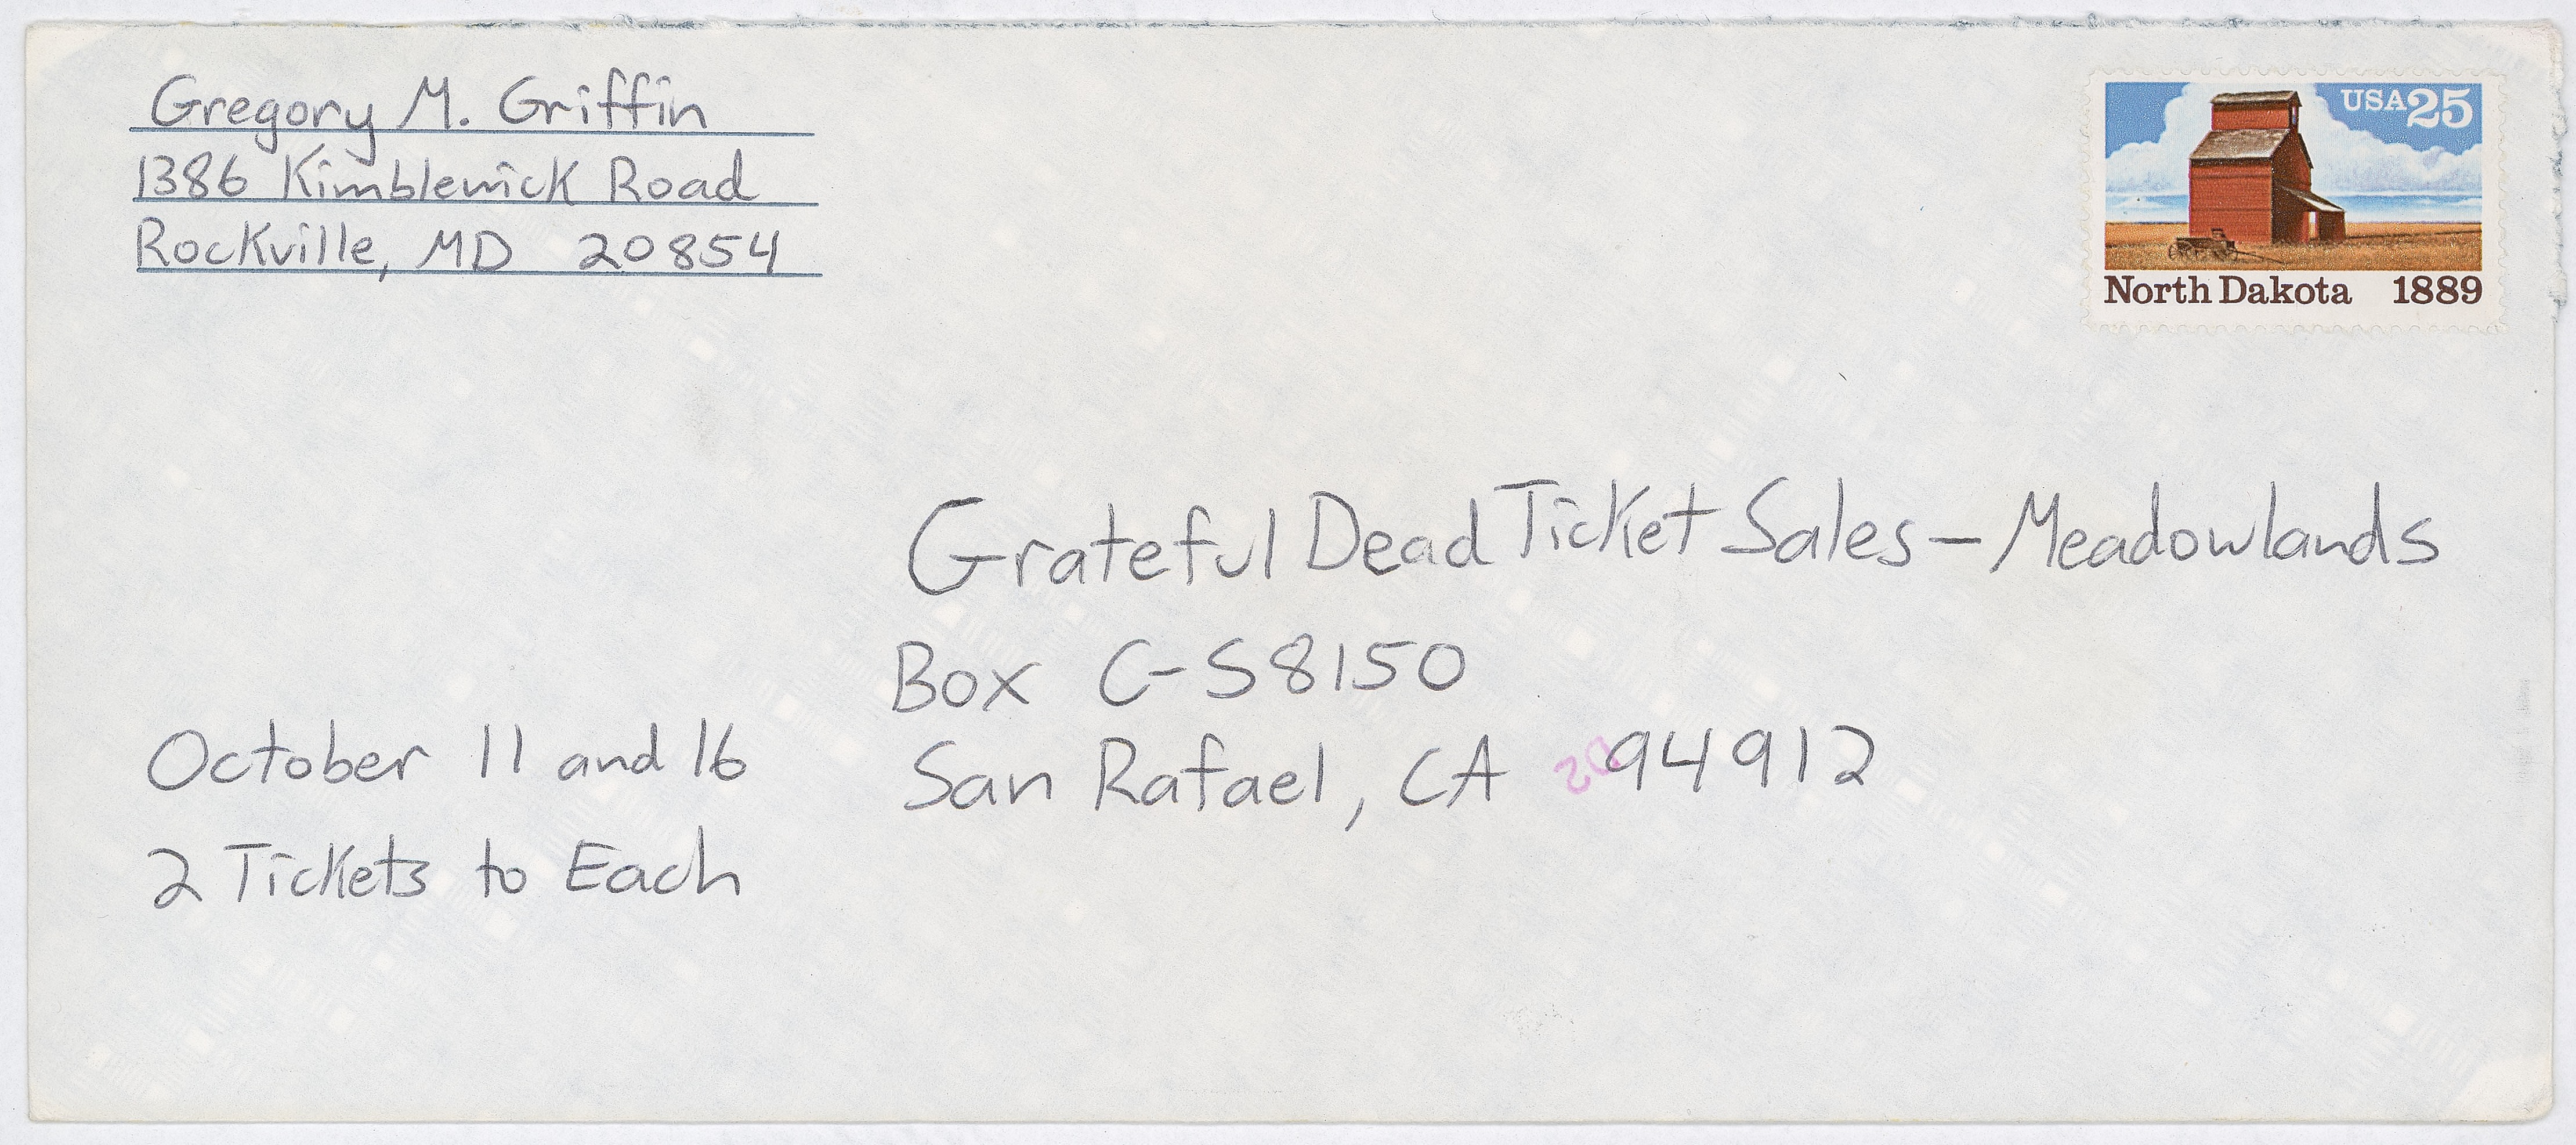 Gregory M. Griffin
1386 Kimblewick Road
Rockville, MD 20854
USA 25
North Dakota 1889
Grateful Dead Ticket Sales - Meadowlands
Box C-S8150
San Rafael, CA 94912
D2
October 11 and 16
2 Tickets to Each